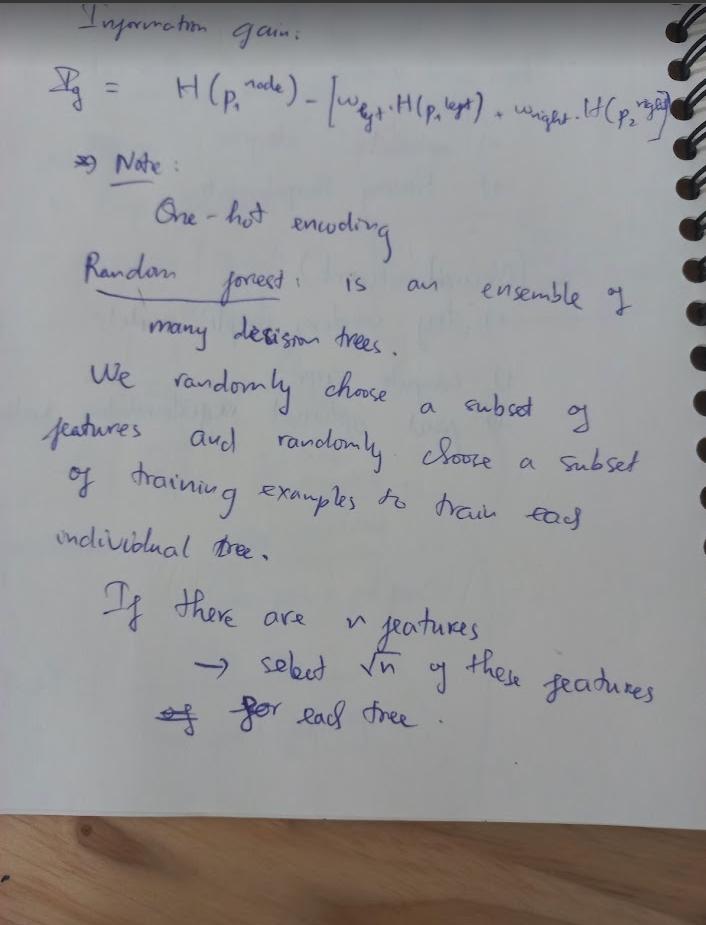 Information gain:
Ig = H(p₁ⁿᵒᵈᵉ) - [w_left · H(p₁ˡᵉᶠᵗ) + w_right · H(p₂ʳⁱᵍʰᵗ)]
Note:
One-hot encoding
Random forest: is an ensemble of
many decision trees.
We randomly choose a subset of
features and randomly choose a subset
of training examples to train each
individual tree.
If there are n features
→ select √n of these features
of for each tree.